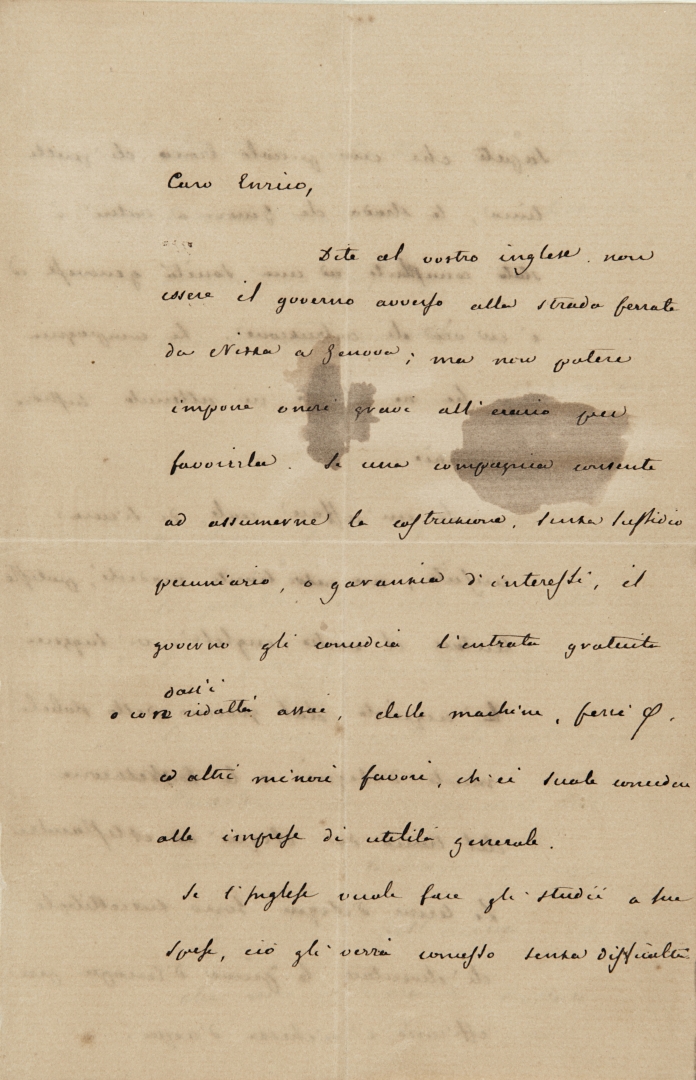 Caro Enrico,
Dite al vostro inglese non
essere il governo avverso alla strada ferrata
da Nizza a Genova; ma non potere
imporre oneri gravi all'erario per
favorirla. Se una compagnia consente
ad assumerne la costruzione, senza sussidio
pecuniario, o garanzia d'interessi, il
governo gli concederà l'entrata gratuita
dazi
o con ridotti assai, delle machine, ferri
ed altri minori favori, ch'ei suole concedere
alle imprese di utilità generale.
Se l'Inglese vuole fare gli studii a sue
spese, ciò gli verrà concesso senza difficoltà